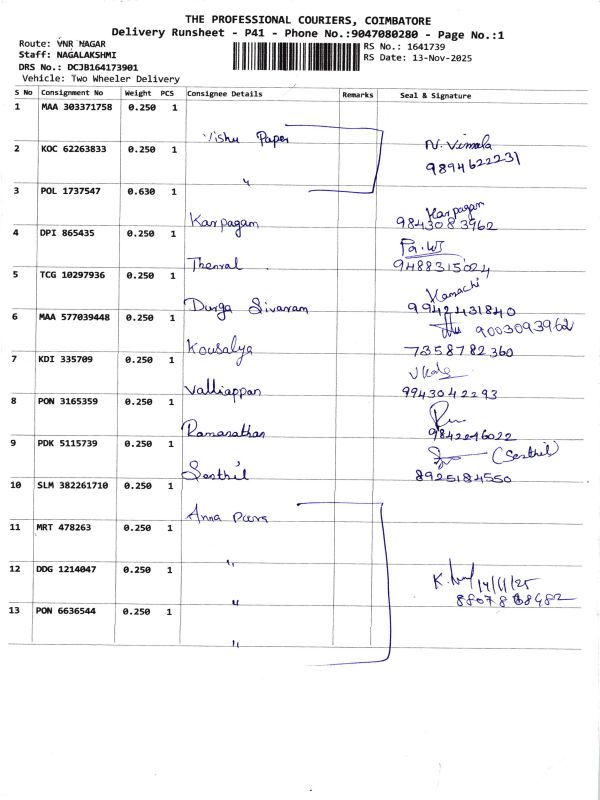 THE PROFESSIONAL COURIERS, COIMBATORE
Delivery Runsheet - P41 - Phone No.:9047080280 - Page No.:1
Route: VNR NAGAR
Staff: NAGALAKSHMI
DRS No.: DCJB164173901
Vehicle: Two Wheeler Delivery
RS No.: 1641739
RS Date: 13-Nov-2025
S No Consignment No Weight PCS Consignee Details Remarks Seal & Signature
1 MAA 303371758 0.250 1
Vishu Paper N. Vimala
2 KOC 62263833 0.250 1 9894622231
"
3 POL 1737547 0.630 1
Karpagam Karpagam 9843083962
4 DPI 865435 0.250 1
Thenral 9488315024
5 TCG 10297936 0.250 1 Kamachi
Durga Sivaram 9942431840
6 MAA 577039448 0.250 1 9003093962
Kousalya 7358782360
7 KDI 335709 0.250 1
Valliappan 9943042293
8 PON 3165359 0.250 1
Ramanathan
9 PDK 5115739 0.250 1 (Senthil)
Senthil 8925184550
10 SLM 382261710 0.250 1
Anna
11 MRT 478263 0.250 1
"
12 DDG 1214047 0.250 1 14/11/25
"
13 PON 6636544 0.250 1
"